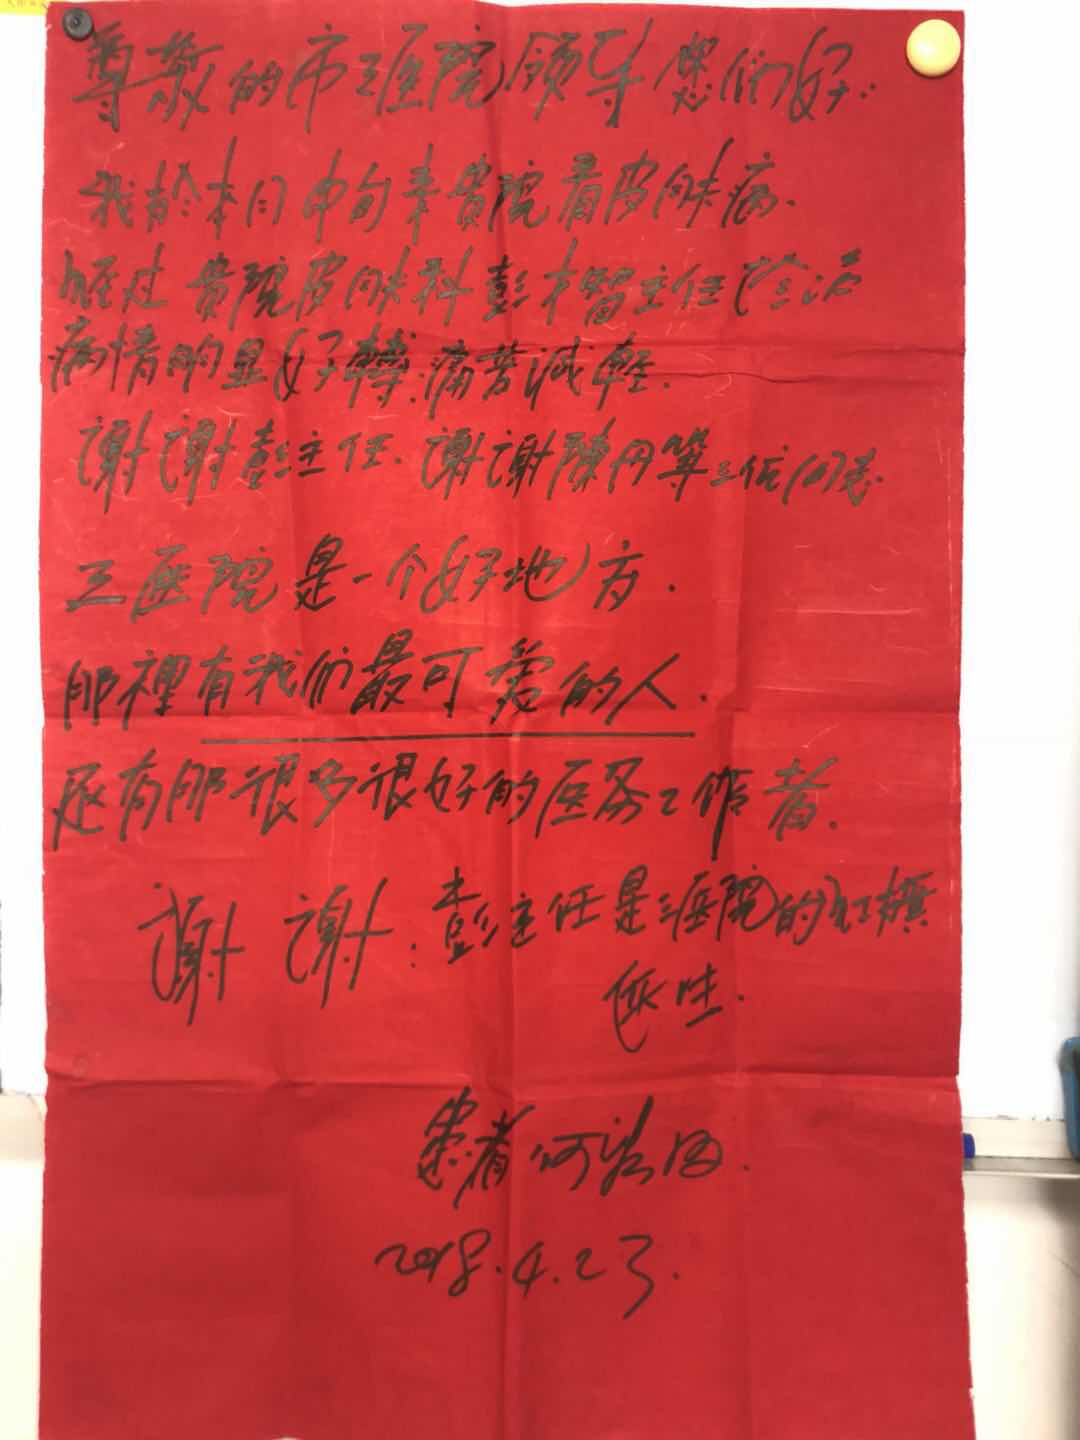 尊敬的市三医院领导您们好:
我於本月中旬来贵院看皮肤病.
经过贵院皮肤科彭木智主任诊治
病情明显好轉.痛苦减輕.
谢谢彭主任.谢谢陳丹等三位同志
三医院是一个好地方.
那裡有我们最可爱的人.
还有那很多很好的医务工作者.
谢谢:彭主任是三医院的红旗
医生.
患者何
2018.4.23.